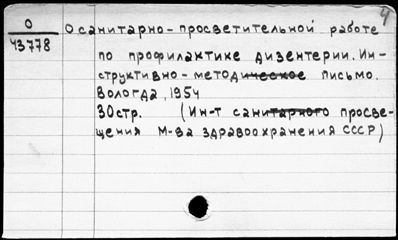 О
43778
О санитарно-просветительной работе
по профилактике дизентерии. Ин-
структивно-методическое письмо.
Вологда, 1954
30стр. (Ин-т санитарного просве-
щения М-ва здравоохранения СССР)